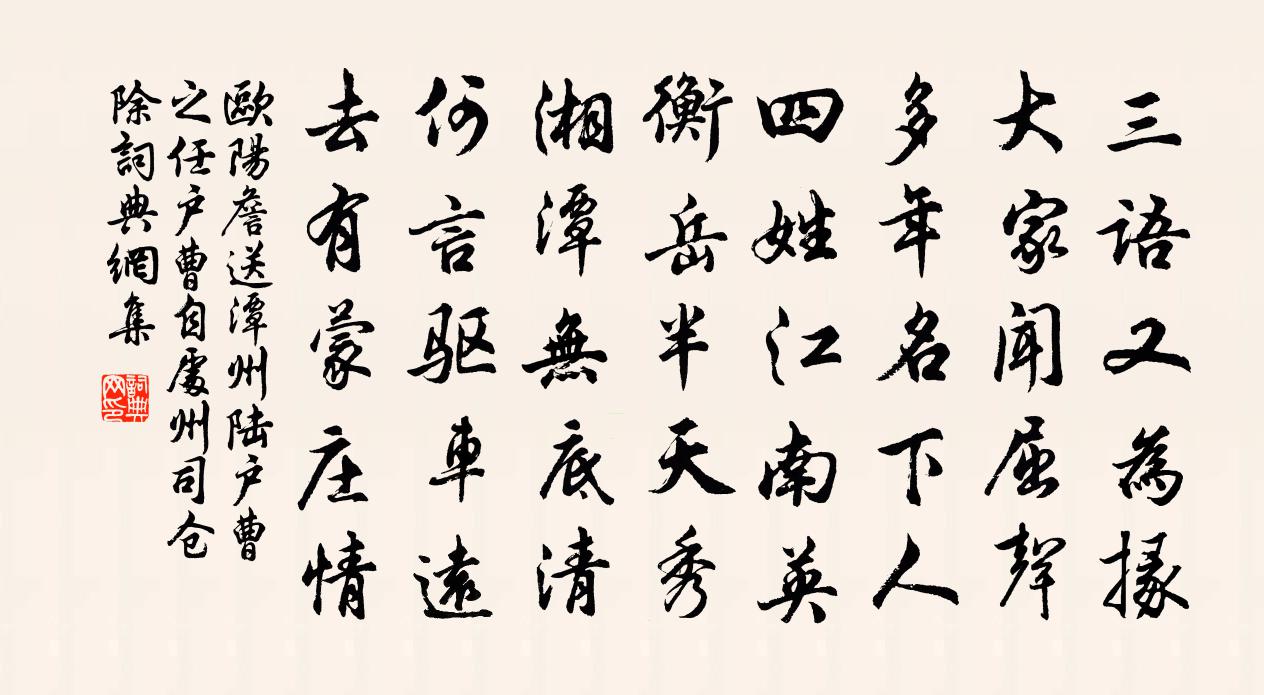 三語又為掾
大家聞屈聲
多年名下人
四姓江南英
衡岳半天秀
湘潭無底清
何言驱車遠
去有蒙庄情
歐陽詹送潭州陆户曹
之任户曹自處州司仓
除詞典網集
詞典网印